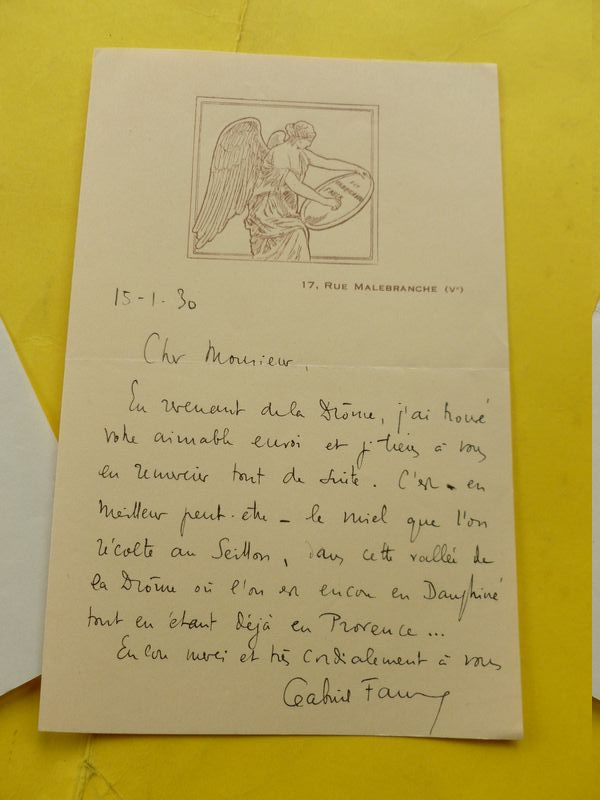 17, RUE MALEBRANCHE (Vᵉ)
15-1-30
Cher Monsieur,
En revenant de la Drôme, j'ai trouvé
votre aimable envoi et j'tiens à vous
en remercier tout de suite. C'est - en
meilleur peut-être - le miel que l'on
récolte au Seillon, dans cette vallée de
la Drôme où l'on est encore en Dauphiné
tout en étant déjà en Provence...
Encore merci et très cordialement à vous
Gabriel Faure